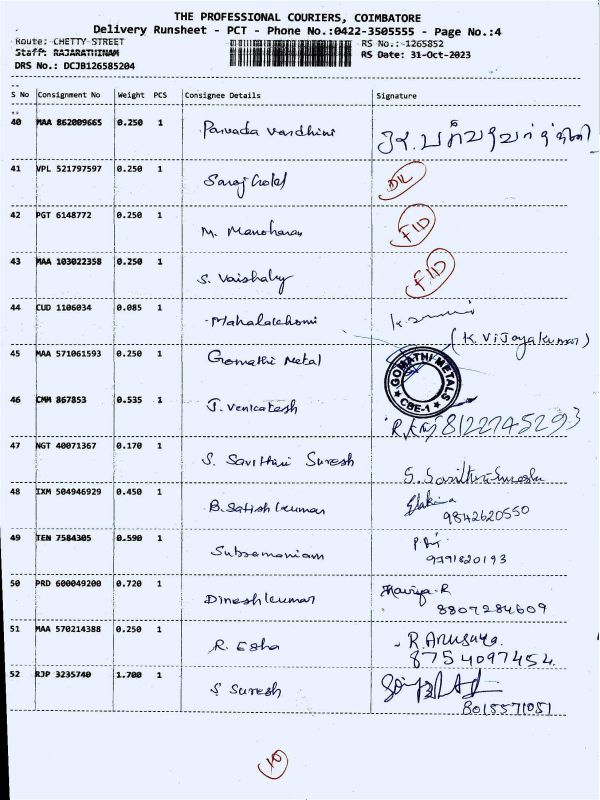 THE PROFESSIONAL COURIERS, COIMBATORE
Delivery Runsheet - PCT - Phone No.:0422-3505555 - Page No.:4
Route: CHETTY STREET RS No.: -1265852
Staff: RAJARATHINAM RS Date: 31-Oct-2023
DRS No.: DCJB126585204
S No Consignment No Weight PCS Consignee Details Signature
40 MAA 862009665 0.250 1 Parvada Vardhini
41 VPL 521797597 0.250 1 Saroj Gold DL
42 PGT 6148772 0.250 1 M. Manoharan FID
43 MAA 103022358 0.250 1 S. Vaishaly FID
44 CUD 1106034 0.085 1 Mahalakhomi
(K. Vijayakumar)
45 MAA 571061593 0.250 1 Gomathi Metal GOMATHI METALS CBE-1
46 CMM 867853 0.535 1 J. Venkatesh 8122745293
47 NGT 40071367 0.170 1 S. Savithiri Suresh S. Savithri Suresh
48 IXM 504946929 0.450 1 B. Satish kumar
9842620550
49 TEN 7584305 0.590 1 Subramaniam
9791820193
50 PRD 600049200 0.720 1 Dineshkumar R
8807284609
51 MAA 570214388 0.250 1 R. Esha R. Anusaya.
8754097454.
52 RJP 3235740 1.700 1 S Suresh
8015571051
10